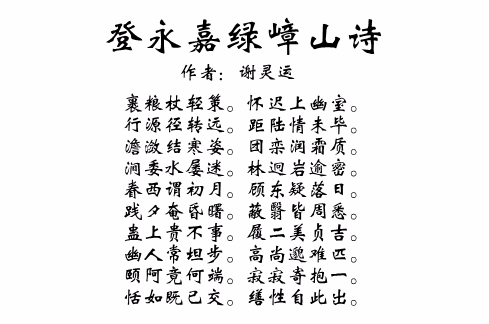 登永嘉绿嶂山诗
作者：谢灵运
裹粮杖轻策。怀迟上幽室。
行源径转远。距陆情未毕。
澹潋结寒姿。团栾润霜质。
涧委水屡迷。林迥岩逾密。
眷西谓初月。顾东疑落日。
践夕奄昏曙。蔽翳皆周悉。
蛊上贵不事。履二美贞吉。
幽人常坦步。高尚邈难匹。
颐阿竟何端。寂寂寄抱一。
恬如既已交。缮性自此出。